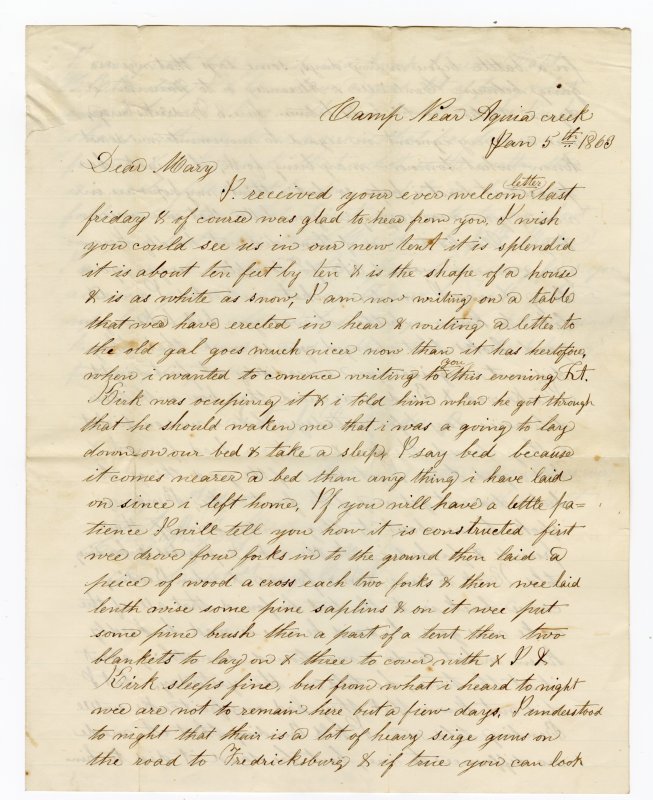 Camp Near Aquia creek
Jan 5th 1863
Dear Mary
I received your ever welcom letter last
friday & of course was glad to hear from you, I wish
you could see us in our new tent it is splendid
it is about ten feet by ten & is the shape of a house
& is as white as snow, I am now writing on a table
that wee have erected in hear & writing a letter to
the old gal goes much nicer now than it has hertofore,
when i wanted to comence writing to you this evening Lt.
Kirk was ocupiing it & i told him when he got through
that he should waken me that i was a going to lay
down on our bed & take a sleep, I say bed because
it comes nearer a bed than any thing i have laid
on since i left home, If you will have a little pa=
tience I will tell you how it is constructed first
wee drove four forks in to the ground then laid a
peice of wood a cross each two forks & then wee laid
lenth wise some pine saplins & on it wee put
some pine brush then a part of a tent then two
blankets to lay on & three to cover with & I &
Kirk sleeps fine, but from what i heard to night
wee are not to remain here but a fiew days, I understood
to night that thair is a lot of heavy seige guns on
the road to Fredricksburg & if true you can look